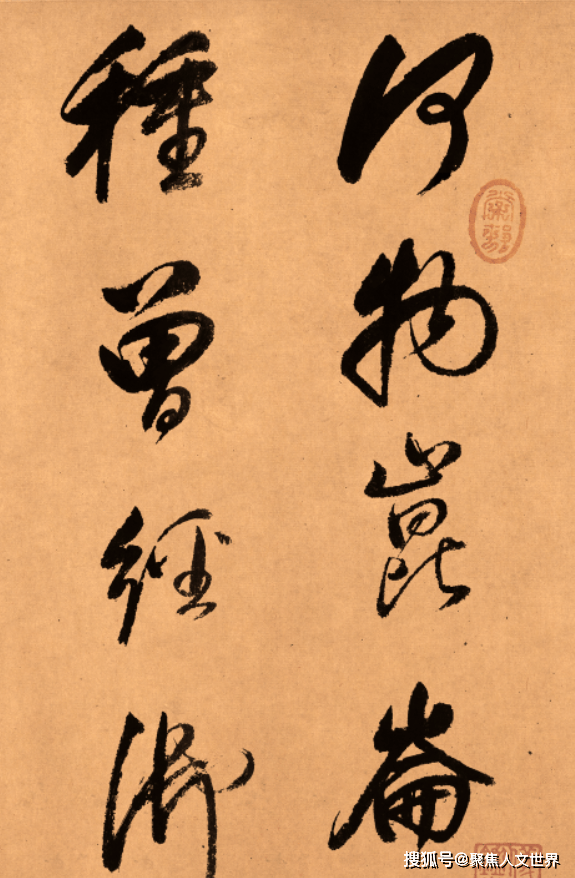 何物崑崙
種曾經御
搜狐号@聚焦人文世界